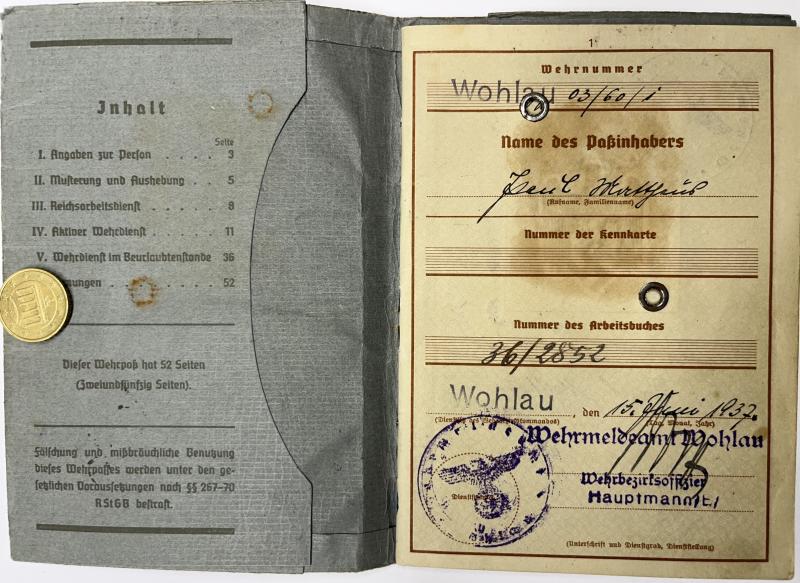 Inhalt
Seite
I. Angaben zur Person . . . . 3
II. Musterung und Aushebung . . 5
III. Reichsarbeitsdienst . . . . 8
IV. Aktiver Wehrdienst . . . . 11
V. Wehrdienst im Beurlaubtenstande 36
. . . . 52
Dieser Wehrpaß hat 52 Seiten
(Zweiundfünfzig Seiten).
Fälschung und mißbräuchliche Benutzung
dieses Wehrpasses werden unter den ge-
setzlichen Voraussetzungen nach §§ 267-70
RStGB bestraft.
1
Wehrnummer
Wohlau 03/60/1
Name des Paßinhabers
Paul
(Rufname, Familienname)
Nummer der Kennkarte
Nummer des Arbeitsbuches
36/2852
Wohlau, den 15. Juni 1937.
Wehrmeldeamt Wohlau
Wehrbezirksoffizier
Hauptmann(E)
(Unterschrift und Dienstgrad, Dienststellung)